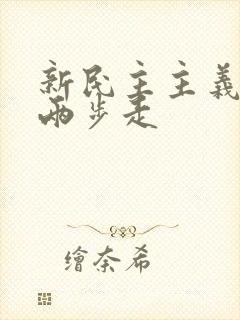 新民主主義
兩步走
繪奈希